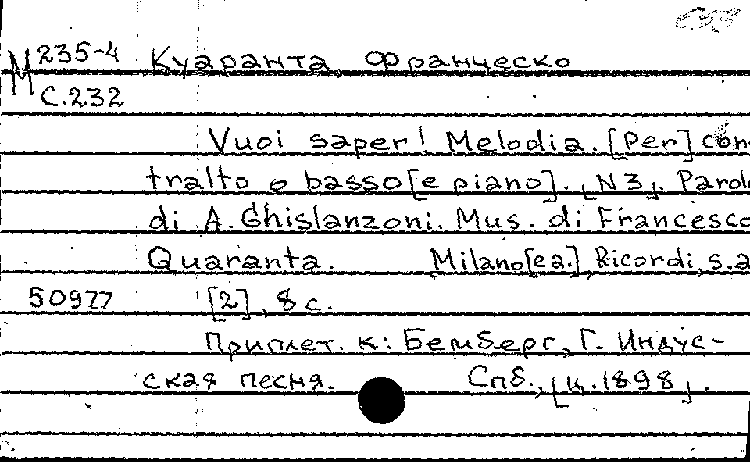 М 235-4 Куаранта, Франческо
С.232
Vuoi saper! Melodia. [Per] con
tralto o basso [e piano]. [N 3]. Parole
di A. Ghislanzoni. Mus. di Francesco
Quaranta. Milano [e a.], Ricordi, s.a
50977 [2], 8 с.
Приплет. к: Бемберг, Г. Индус-
ская песня. Спб., [ц. 1898].